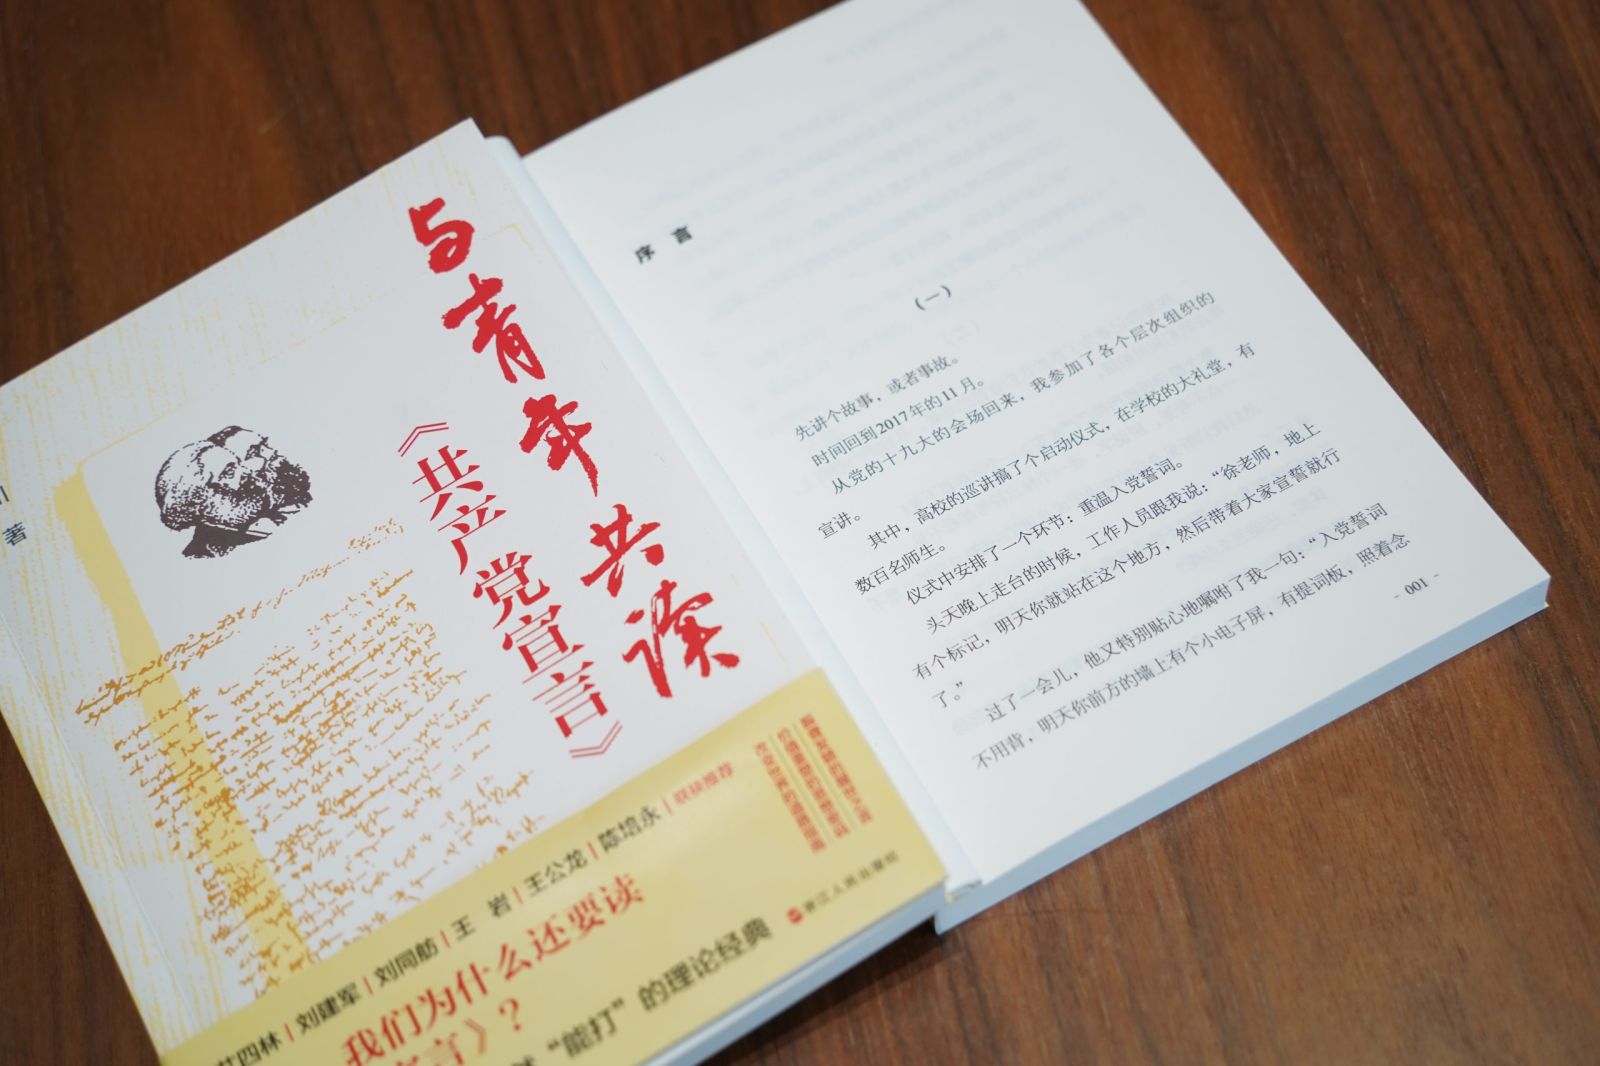 与青年共读
《共产党宣言》
著
艾四林|刘建军|刘同舫|王 岩|王公龙|陈培永|联袂推荐
我们为什么还要读
宣言》？
“能打”的理论经典
浙江人民出版社
序 言
（一）
先讲个故事，或者事故。
时间回到2017年的11月。
从党的十九大的会场回来，我参加了各个层次组织的
宣讲。
其中，高校的巡讲搞了个启动仪式，在学校的大礼堂，有
数百名师生。
仪式中安排了一个环节：重温入党誓词。
头天晚上走台的时候，工作人员跟我说：“徐老师，地上
有个标记，明天你就站在这个地方，然后带着大家宣誓就行
了。”
过了一会儿，他又特别贴心地嘱咐了我一句：“入党誓词
不用背，明天你前方的墙上有个小电子屏，有提词板，照着念
- 001 -